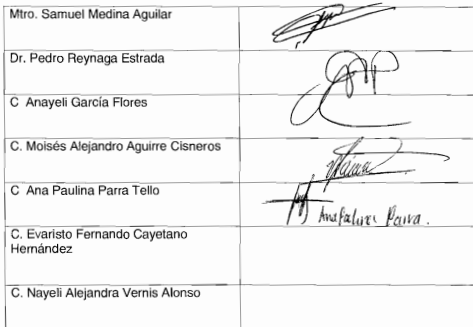 Mtro. Samuel Medina Aguilar
Dr. Pedro Reynaga Estrada
C Anayeli García Flores
C. Moisés Alejandro Aguirre Cisneros
C Ana Paulina Parra Tello
Parra.
C. Evaristo Fernando Cayetano
Hernández
C. Nayeli Alejandra Vernis Alonso